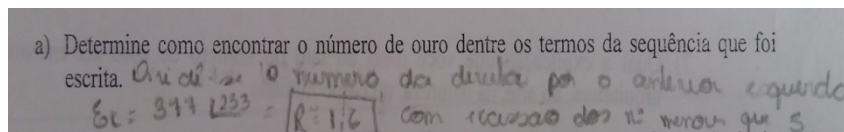 a) Determine como encontrar o número de ouro dentre os termos da sequência que foi
escrita. Dividi-se o número da direita por o anterior esquerdo
Ex: 377 233 = R = 1,6 com excessão dos nº menores que 5